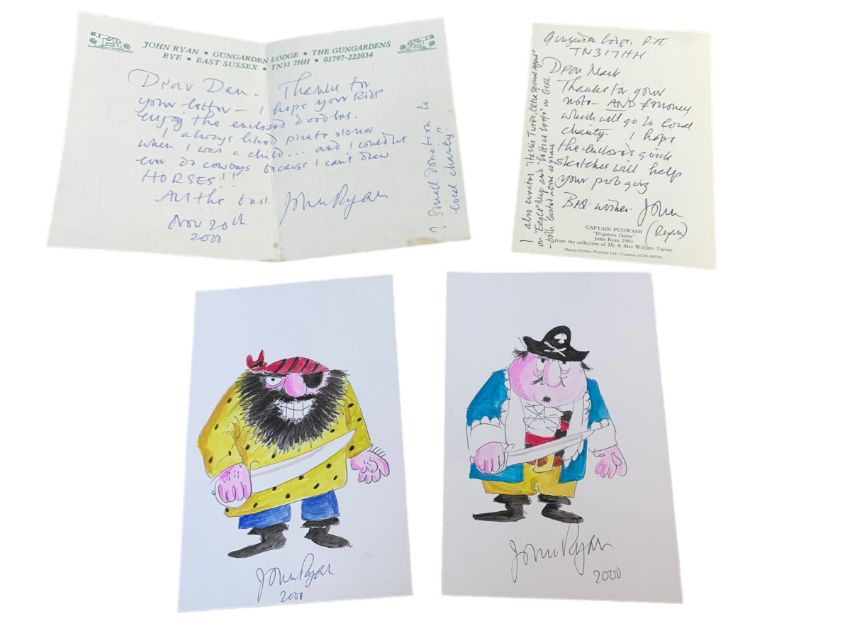 JOHN RYAN • GUNGARDEN LODGE • THE GUNGARDENS
RYE • EAST SUSSEX • TN31 7HH • 01797-222034
Dear Dan. Thanks for
your letter – I hope your kids
enjoy the enclosed doodles.
I always liked pirate stories
when I was a child... and I couldn't
ever do cowboys because I can't draw
HORSES!!
All the best John Ryan
Nov 20th
2000
Small donation to
local charity?
Gungarden Lodge, RYE
TN31 7HH
Dear Mark
Thanks for your
note – AND money
which will go to local
charity – I hope
the enclosed quick
sketches will help
your
Best wishes John
(Ryan)
I also
CAPTAIN PUGWASH
John Ryan 1991
from the collection of Mr & Mrs William Turner
John Ryan
2000
John Ryan
2000